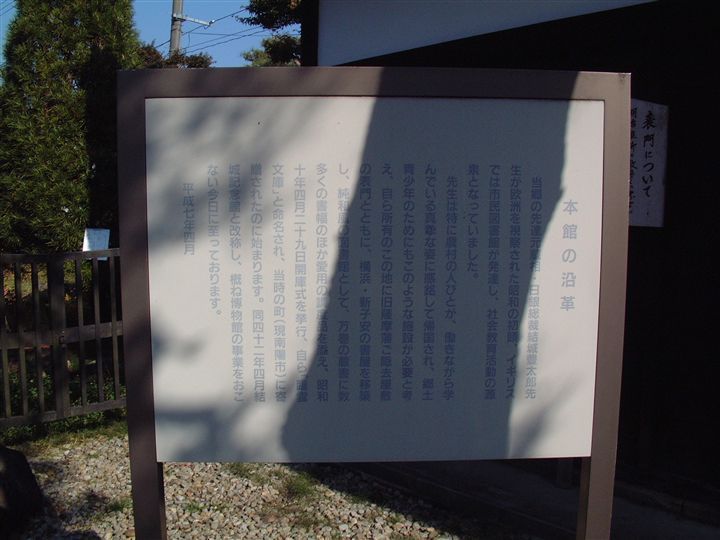 本館の沿革
当郷の先達元蔵相・日銀総裁結城豊太郎先
生が欧洲を視察された昭和の初頭、イギリス
では市民図書館が発達し、社会教育活動の源
泉となっていました。
先生は特に農村の人びとが、働きながら学
んでいる真摯な姿に感銘して帰国され、郷土
青少年のためにもこのような施設が必要と考
え、自ら所有のこの地に旧薩摩藩ご隠去屋敷
の表門とともに、横浜・新子安の書屋を移築
し、純和風の図書館として、万巻の蔵書に数
多くの書幅のほか愛用の調度品を添え、昭和
十年四月二十九日開庫式を挙行、自ら「臨雲
文庫」と命名され、当時の町(現南陽市)に寄
贈されたのに始まります。同四十二年四月結
城記念館と改称し、概ね博物館の事業をおこ
ない今日に至っております。
平成七年四月
表門について